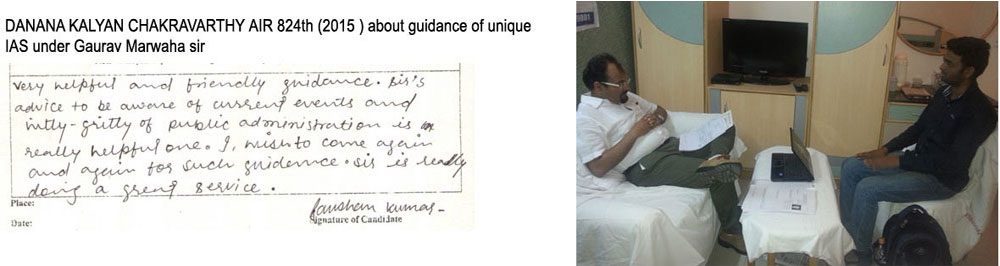 DANANA KALYAN CHAKRAVARTHY AIR 824th (2015 ) about guidance of unique
IAS under Gaurav Marwaha sir
very helpful and friendly guidance. Sir's
advice to be aware of current events and
nitty-gritty of public administration is
really helpful one. I, wish to come again
and again for such guidence. sir is really
doing a great service.
Place:
Date:
Signature of Candidate